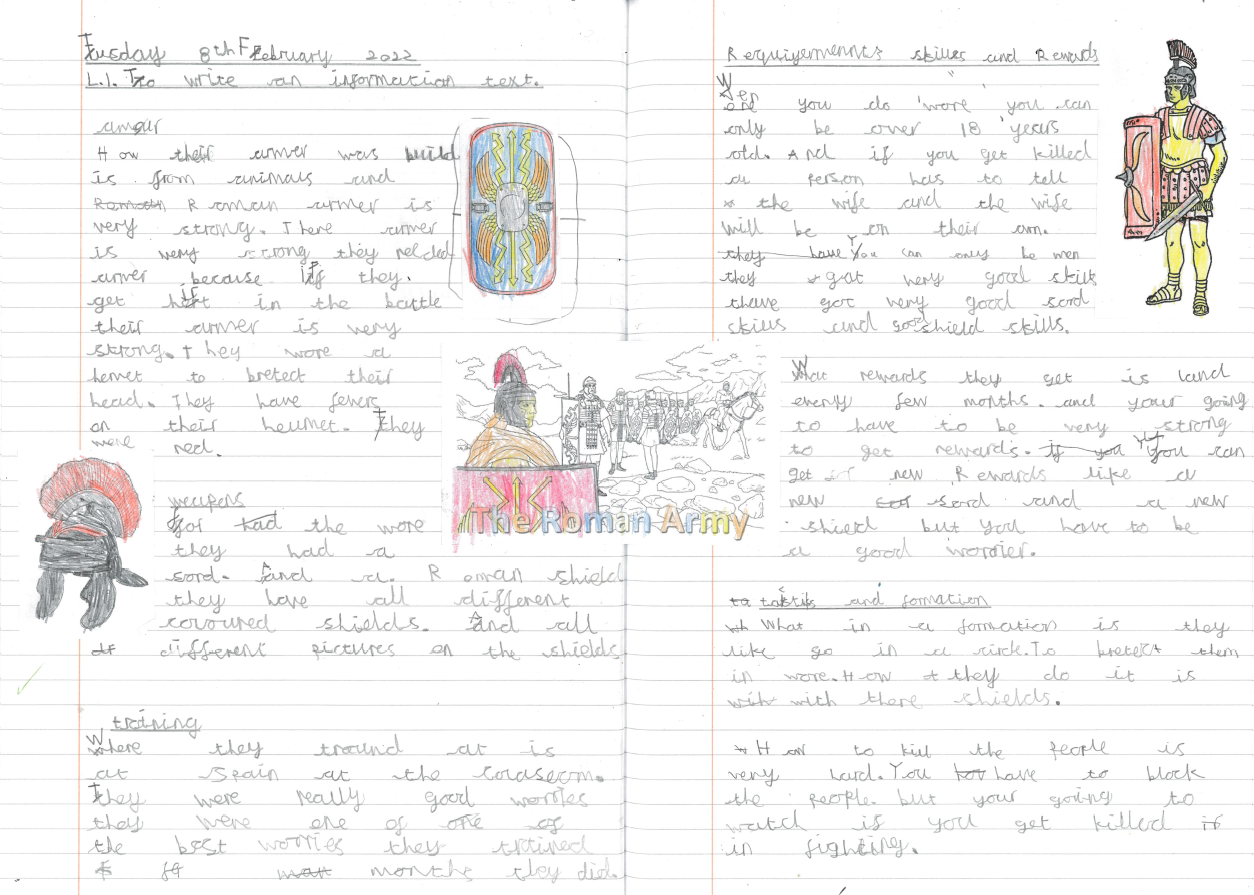 Tuesday 8th February 2022
L.I. To write an information text.
amour
How their armer was build
is from animals and
Roman Roman armer is
very strong. There armer
is very strong they neided
armer because if they.
get hert in the battle
their armer is very
strong. They wore a
hemet to pretect their
head. They have fevers
on their heumet. They
were red.
weapens
for had the wore
they had a
sord. And a. Roman shield
they have all different
coroured shields. And all
different pictures on the shields
training
Where they tround at is
at Spain at the Coraseom.
They were really good worries
they were one of one of
the best worries they trained
months they did.
The Roman Army
Requiyemennts skilles and Rewards
Wen
you do wore you can
only be over 18 years
old. And if you get killed
a person has to tell
the wife and the wife
will be on their own.
they have You can only be men
they got very good skills
thave got very good sord
skills and shield skills.
What rewards they get is land
eveny few months. and your going
to have to be very strong
to get rewards. If you You can
get new Rewards like a
new sord and a new
shield but you have to be
a good worrier.
ta tactiks and formation
wh What in a formation is they
like go in a circk. To pretect them
in wore. How they do it is
with with there shields.
How to kill the people is
very hard. You have to block
the people. but your going to
watch if you get killed if
in fighting.